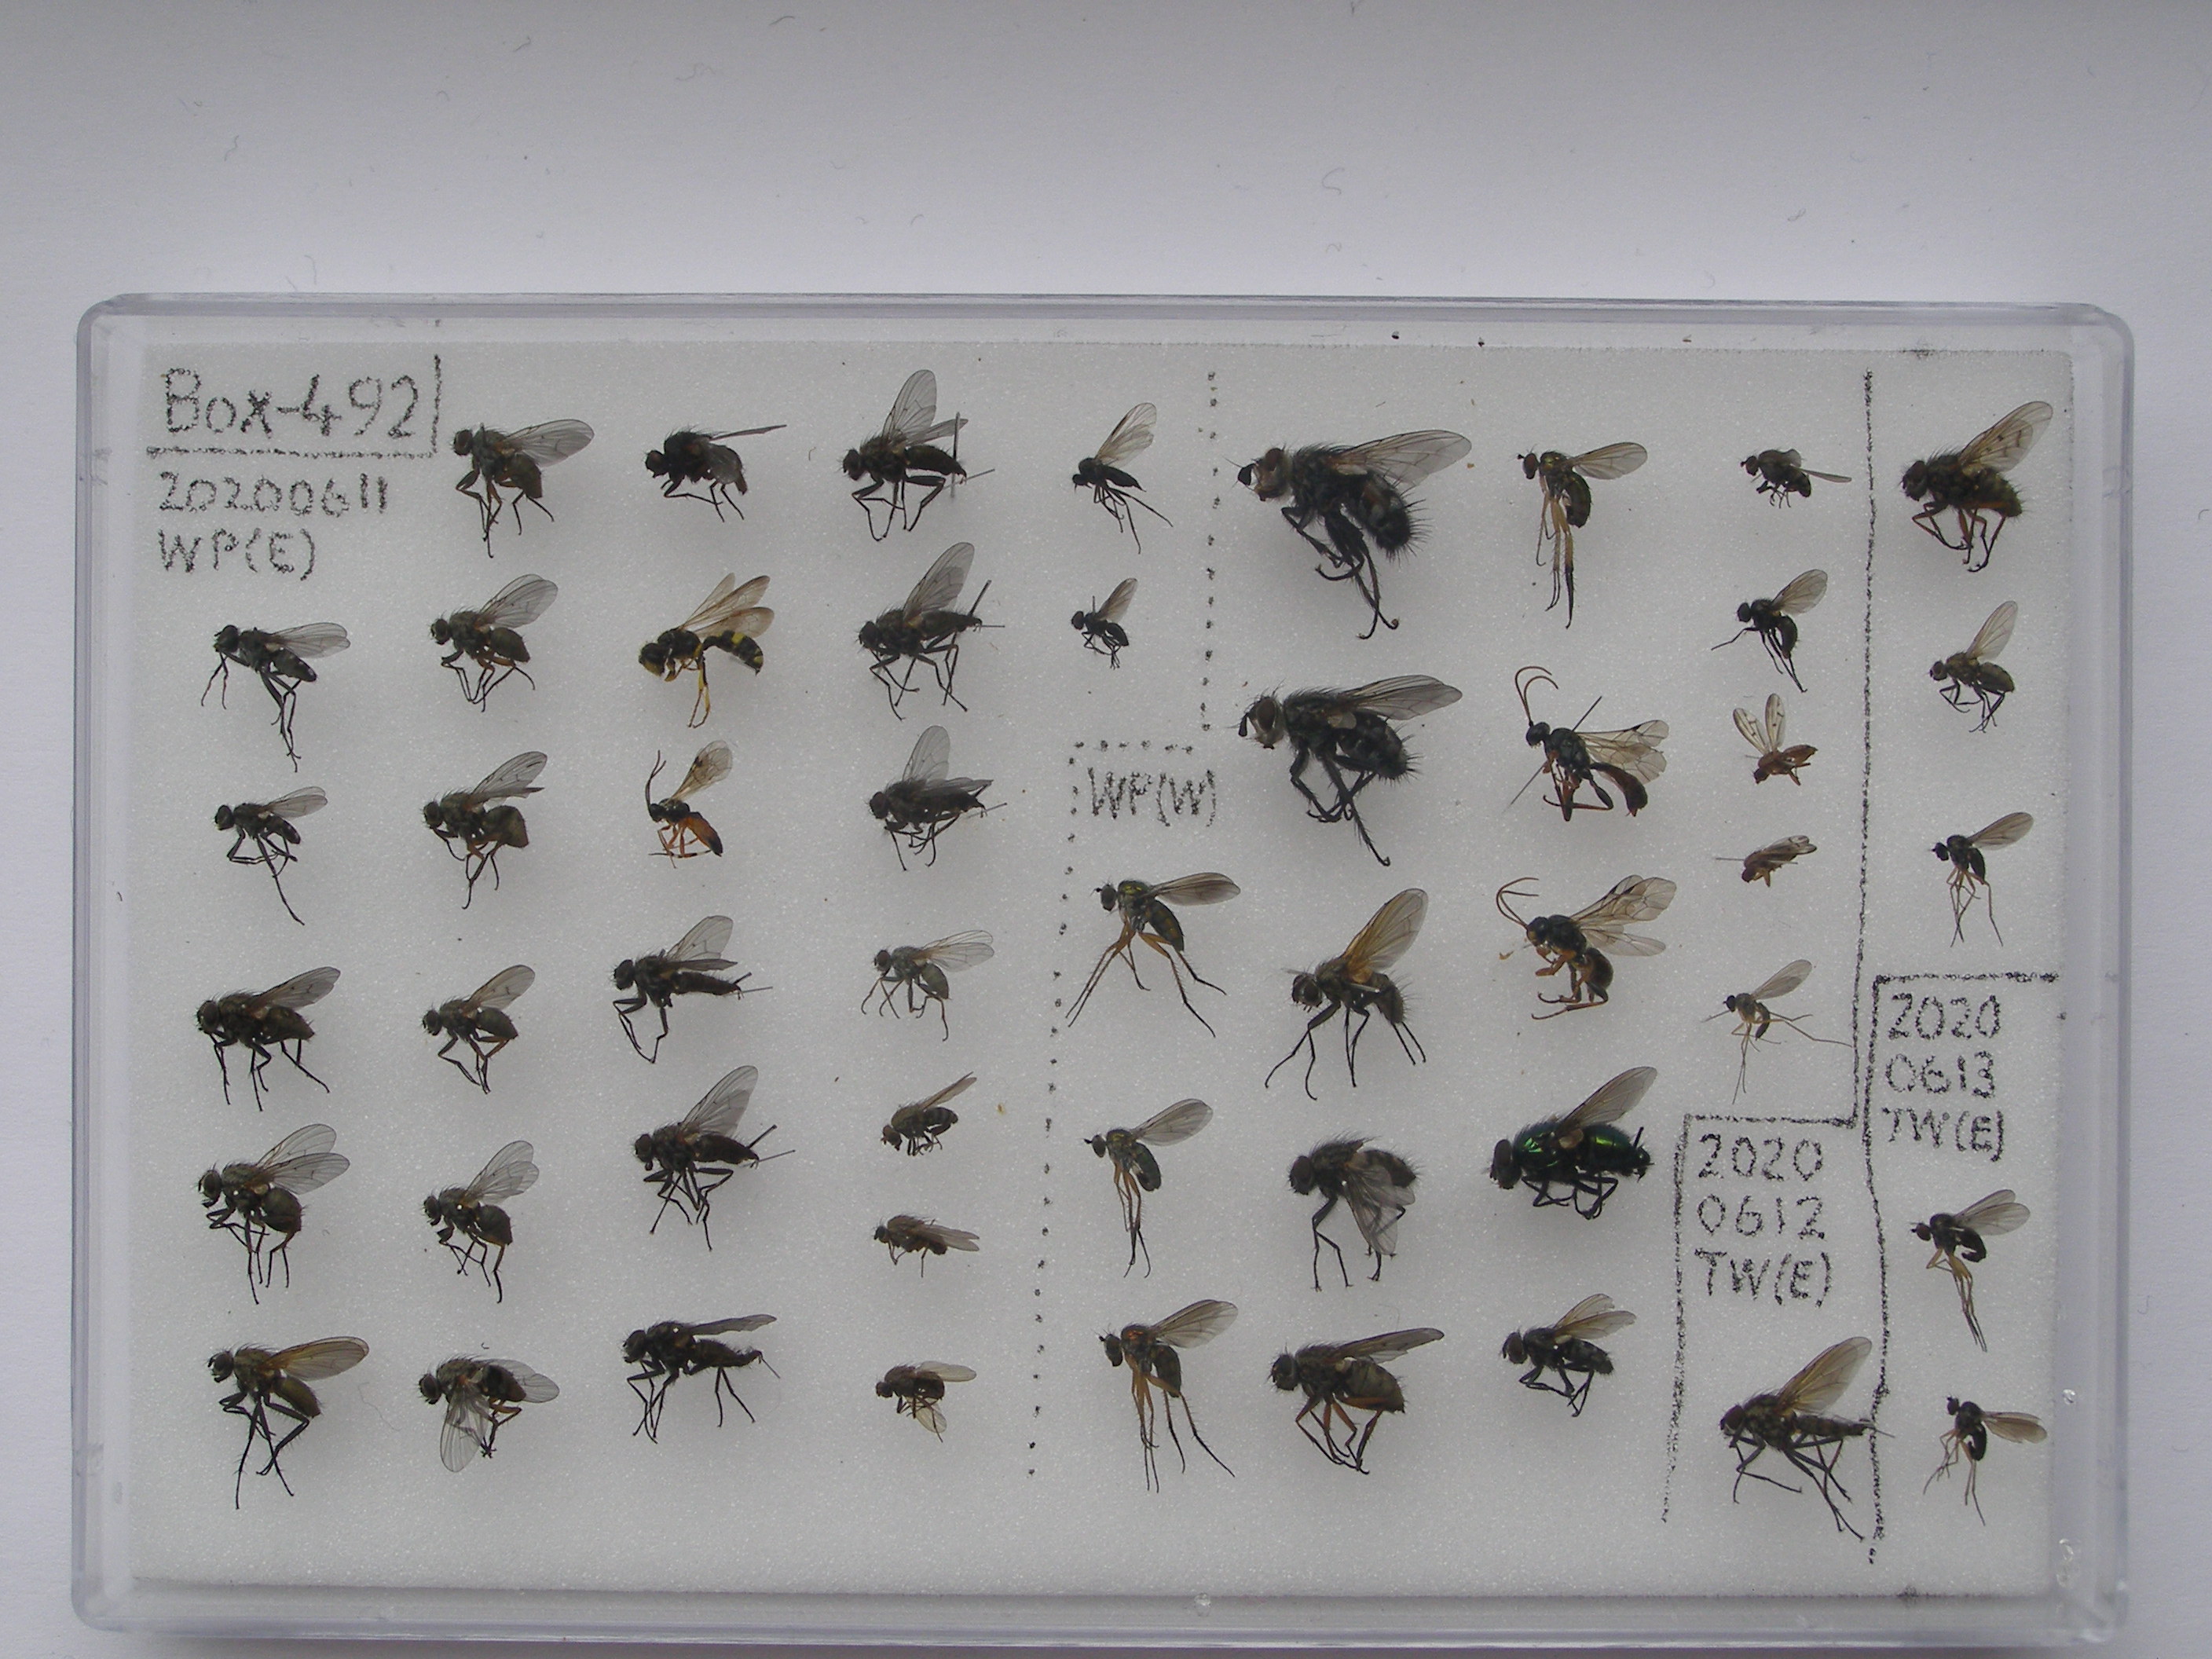 Box-492
20200611
WP(E)
WP(W)
2020
0612
TW(E)
2020
0613
TW(E)